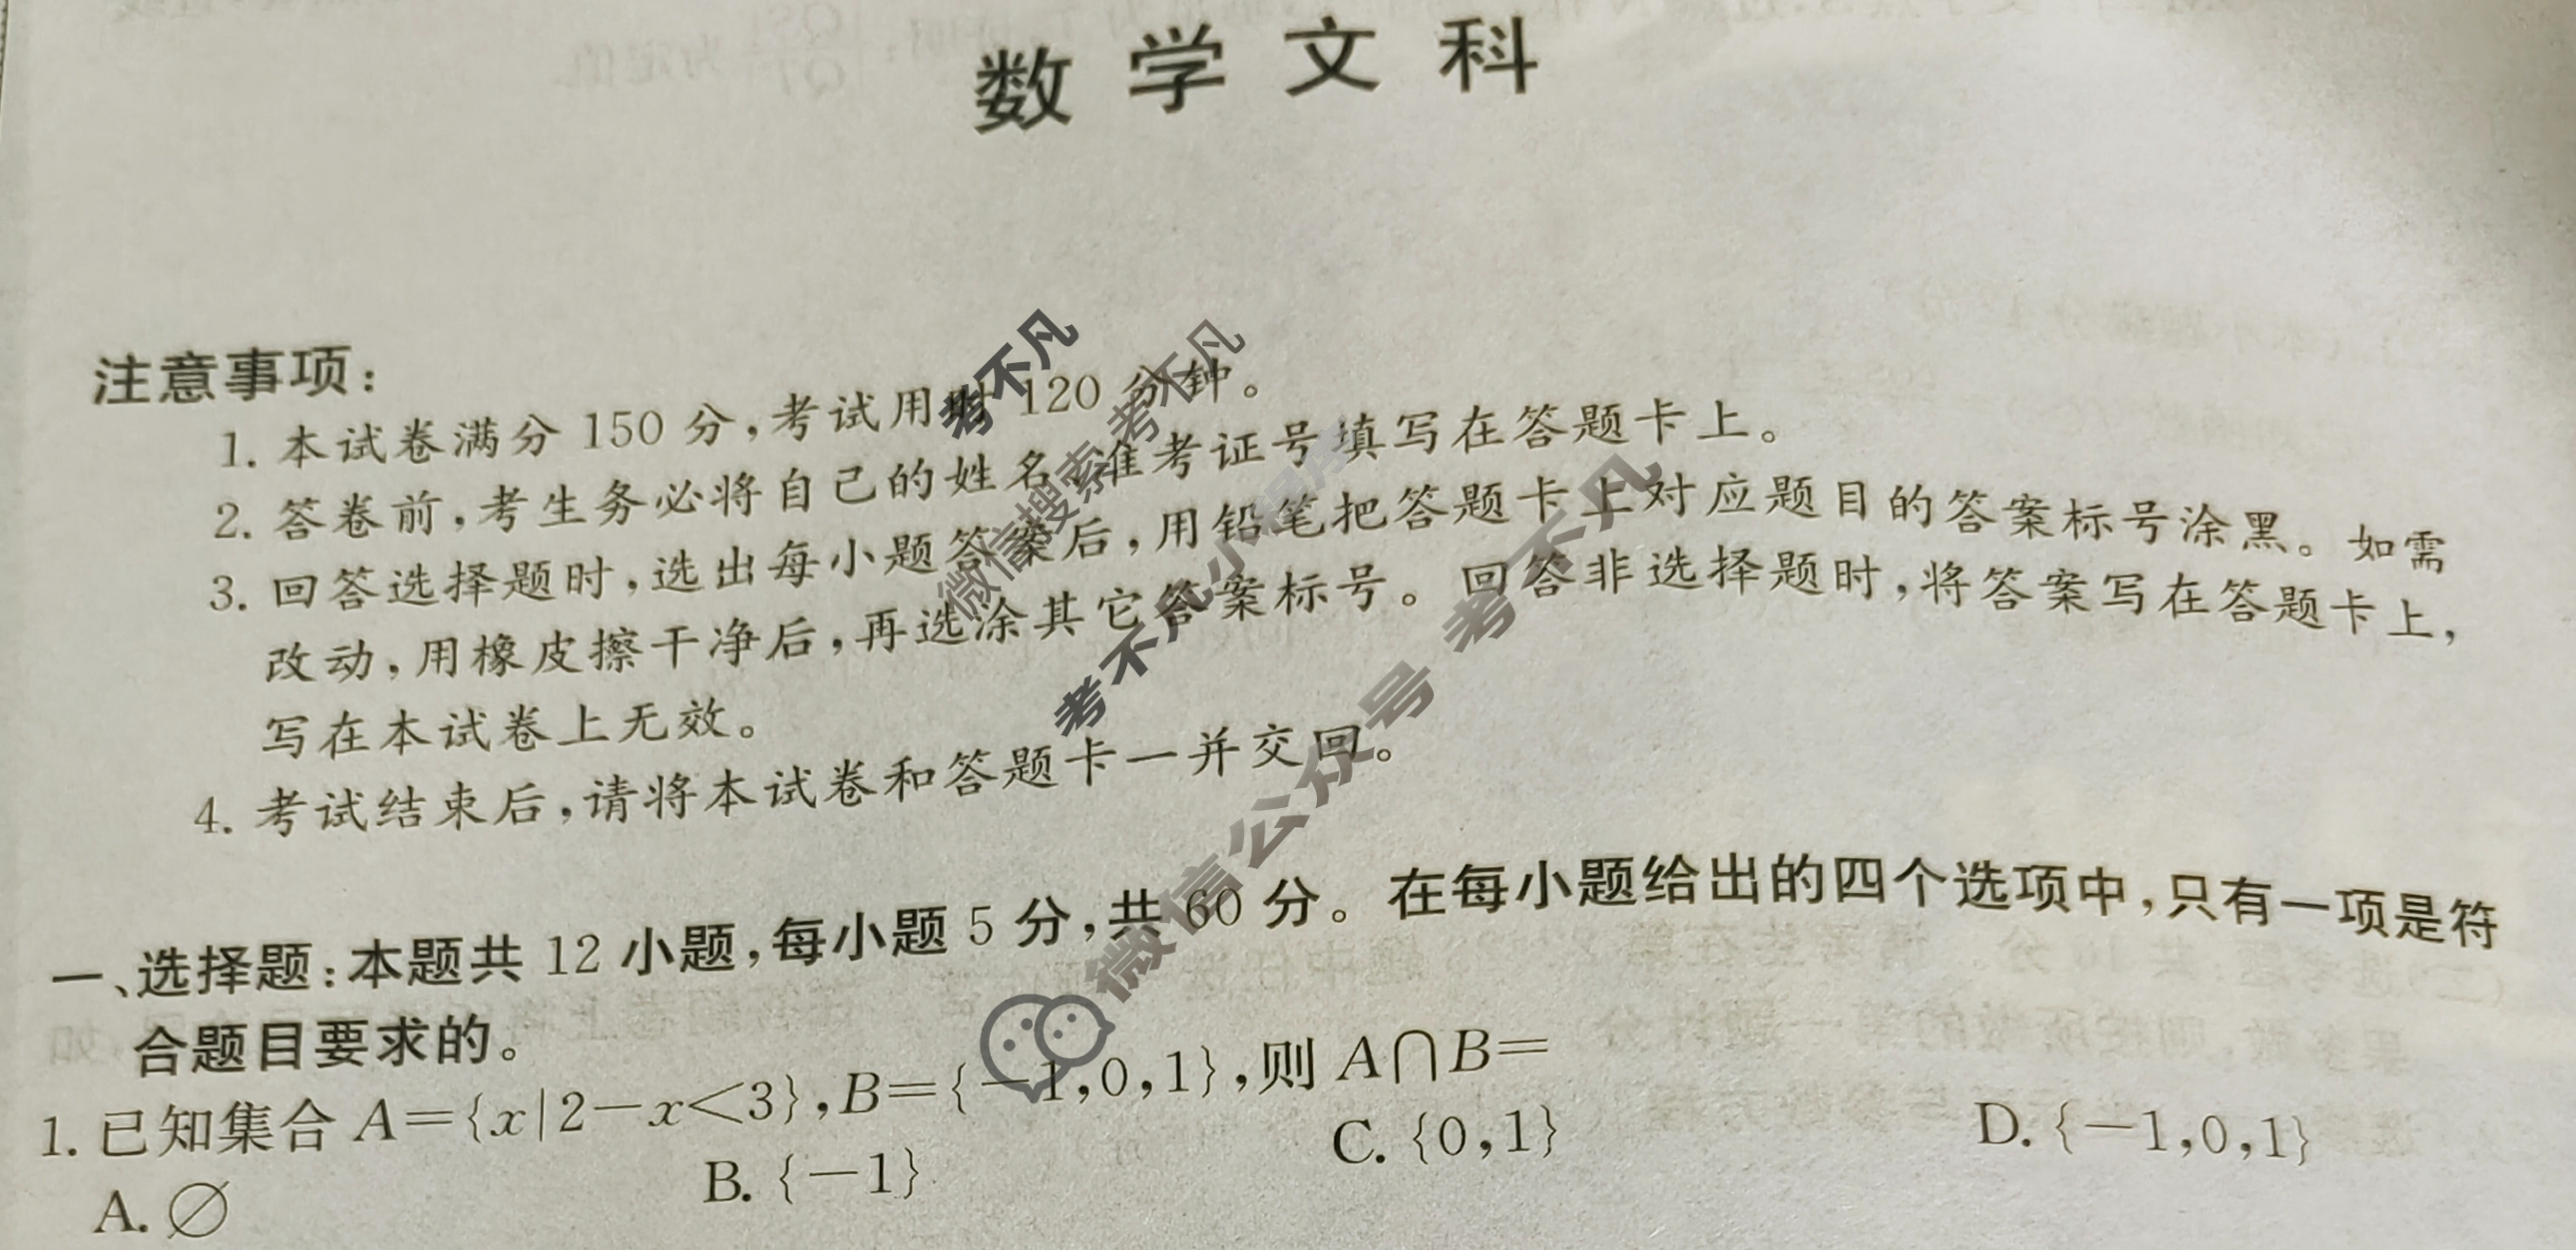 数学文科
注意事项：
1. 本试卷满分 150 分，考试用时 120 分钟。
2. 答卷前，考生务必将自己的姓名、准考证号填写在答题卡上。
3. 回答选择题时，选出每小题答案后，用铅笔把答题卡上对应题目的答案标号涂黑。如需
改动，用橡皮擦干净后，再选涂其它答案标号。回答非选择题时，将答案写在答题卡上，
写在本试卷上无效。
4. 考试结束后，请将本试卷和答题卡一并交回。
一、选择题：本题共 12 小题，每小题 5 分，共 60 分。在每小题给出的四个选项中，只有一项是符
合题目要求的。
1. 已知集合 A={x|2-x<3}，B={-1,0,1}，则 A∩B=
A. ∅ B. {-1} C. {0,1} D. {-1,0,1}
考不凡
微信搜索 考不凡
考不凡小程序
微信公众号 考不凡